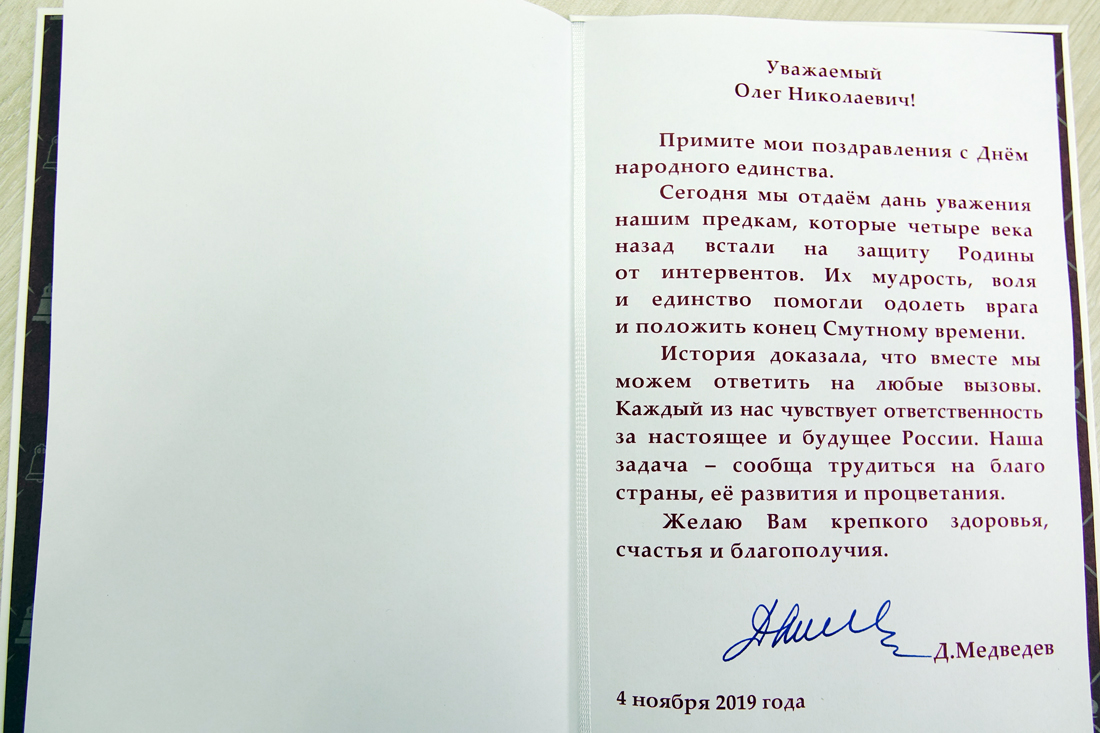 Уважаемый
Олег Николаевич!
Примите мои поздравления с Днём
народного единства.
Сегодня мы отдаём дань уважения
нашим предкам, которые четыре века
назад встали на защиту Родины
от интервентов. Их мудрость, воля
и единство помогли одолеть врага
и положить конец Смутному времени.
История доказала, что вместе мы
можем ответить на любые вызовы.
Каждый из нас чувствует ответственность
за настоящее и будущее России. Наша
задача – сообща трудиться на благо
страны, её развития и процветания.
Желаю Вам крепкого здоровья,
счастья и благополучия.
Д.Медведев
4 ноября 2019 года